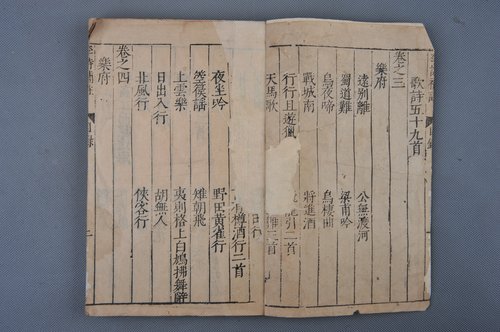 歌詩五十九首
卷之三
樂府
遠別離 公無渡河
蜀道難 梁甫吟
烏夜啼 烏棲曲
戰城南 將進酒
行行且遊獵 引二首
天馬歌 三首
樽酒行二首
夜坐吟 野田黃雀行
箜篌謠 雉朝飛
上雲樂 夷則格上白鳩拂舞辭
日出入行 胡無人
北風行 俠客行
卷之四
樂府
目錄